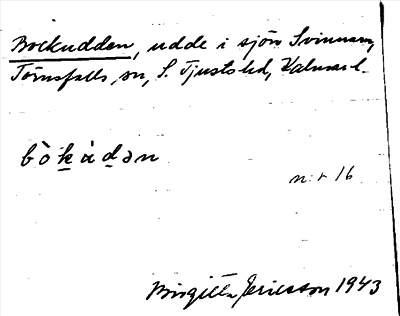 Bockudden, udde i sjön Svinnaren,
Törnsfalls sn, S. Tjusts hd, Kalmar l.
bòkàdən
nr 16
Birgitta Ericsson 1943